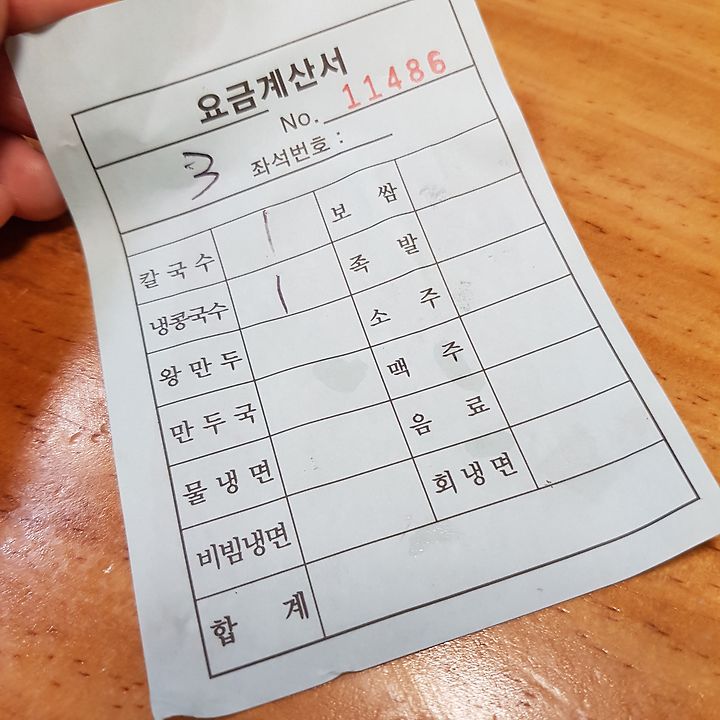 요금계산서
No. 11486
3 좌석번호 :
칼국수 1 보 쌈
냉콩국수 1 족 발
왕만두 소 주
만두국 맥 주
물냉면 음 료
비빔냉면 회냉면
합 계